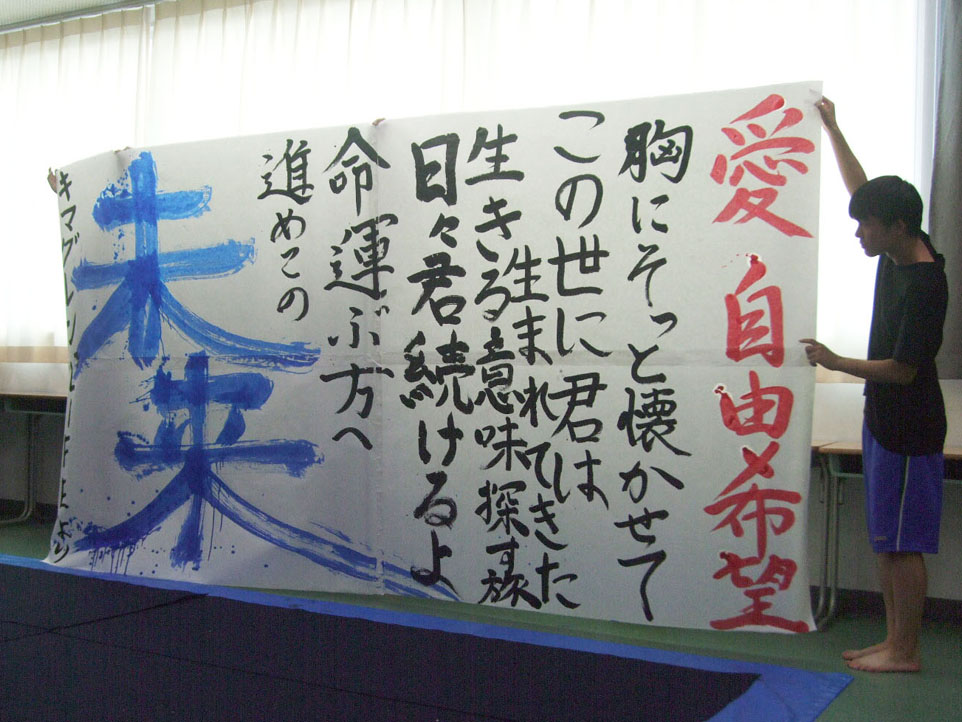 愛 自由 希望
胸にそっと懐かせて
この世に君は
生まれてきた
生きる意味探す旅
日々君続けるよ
命運ぶ方へ
進めこの
未来
キマグレン